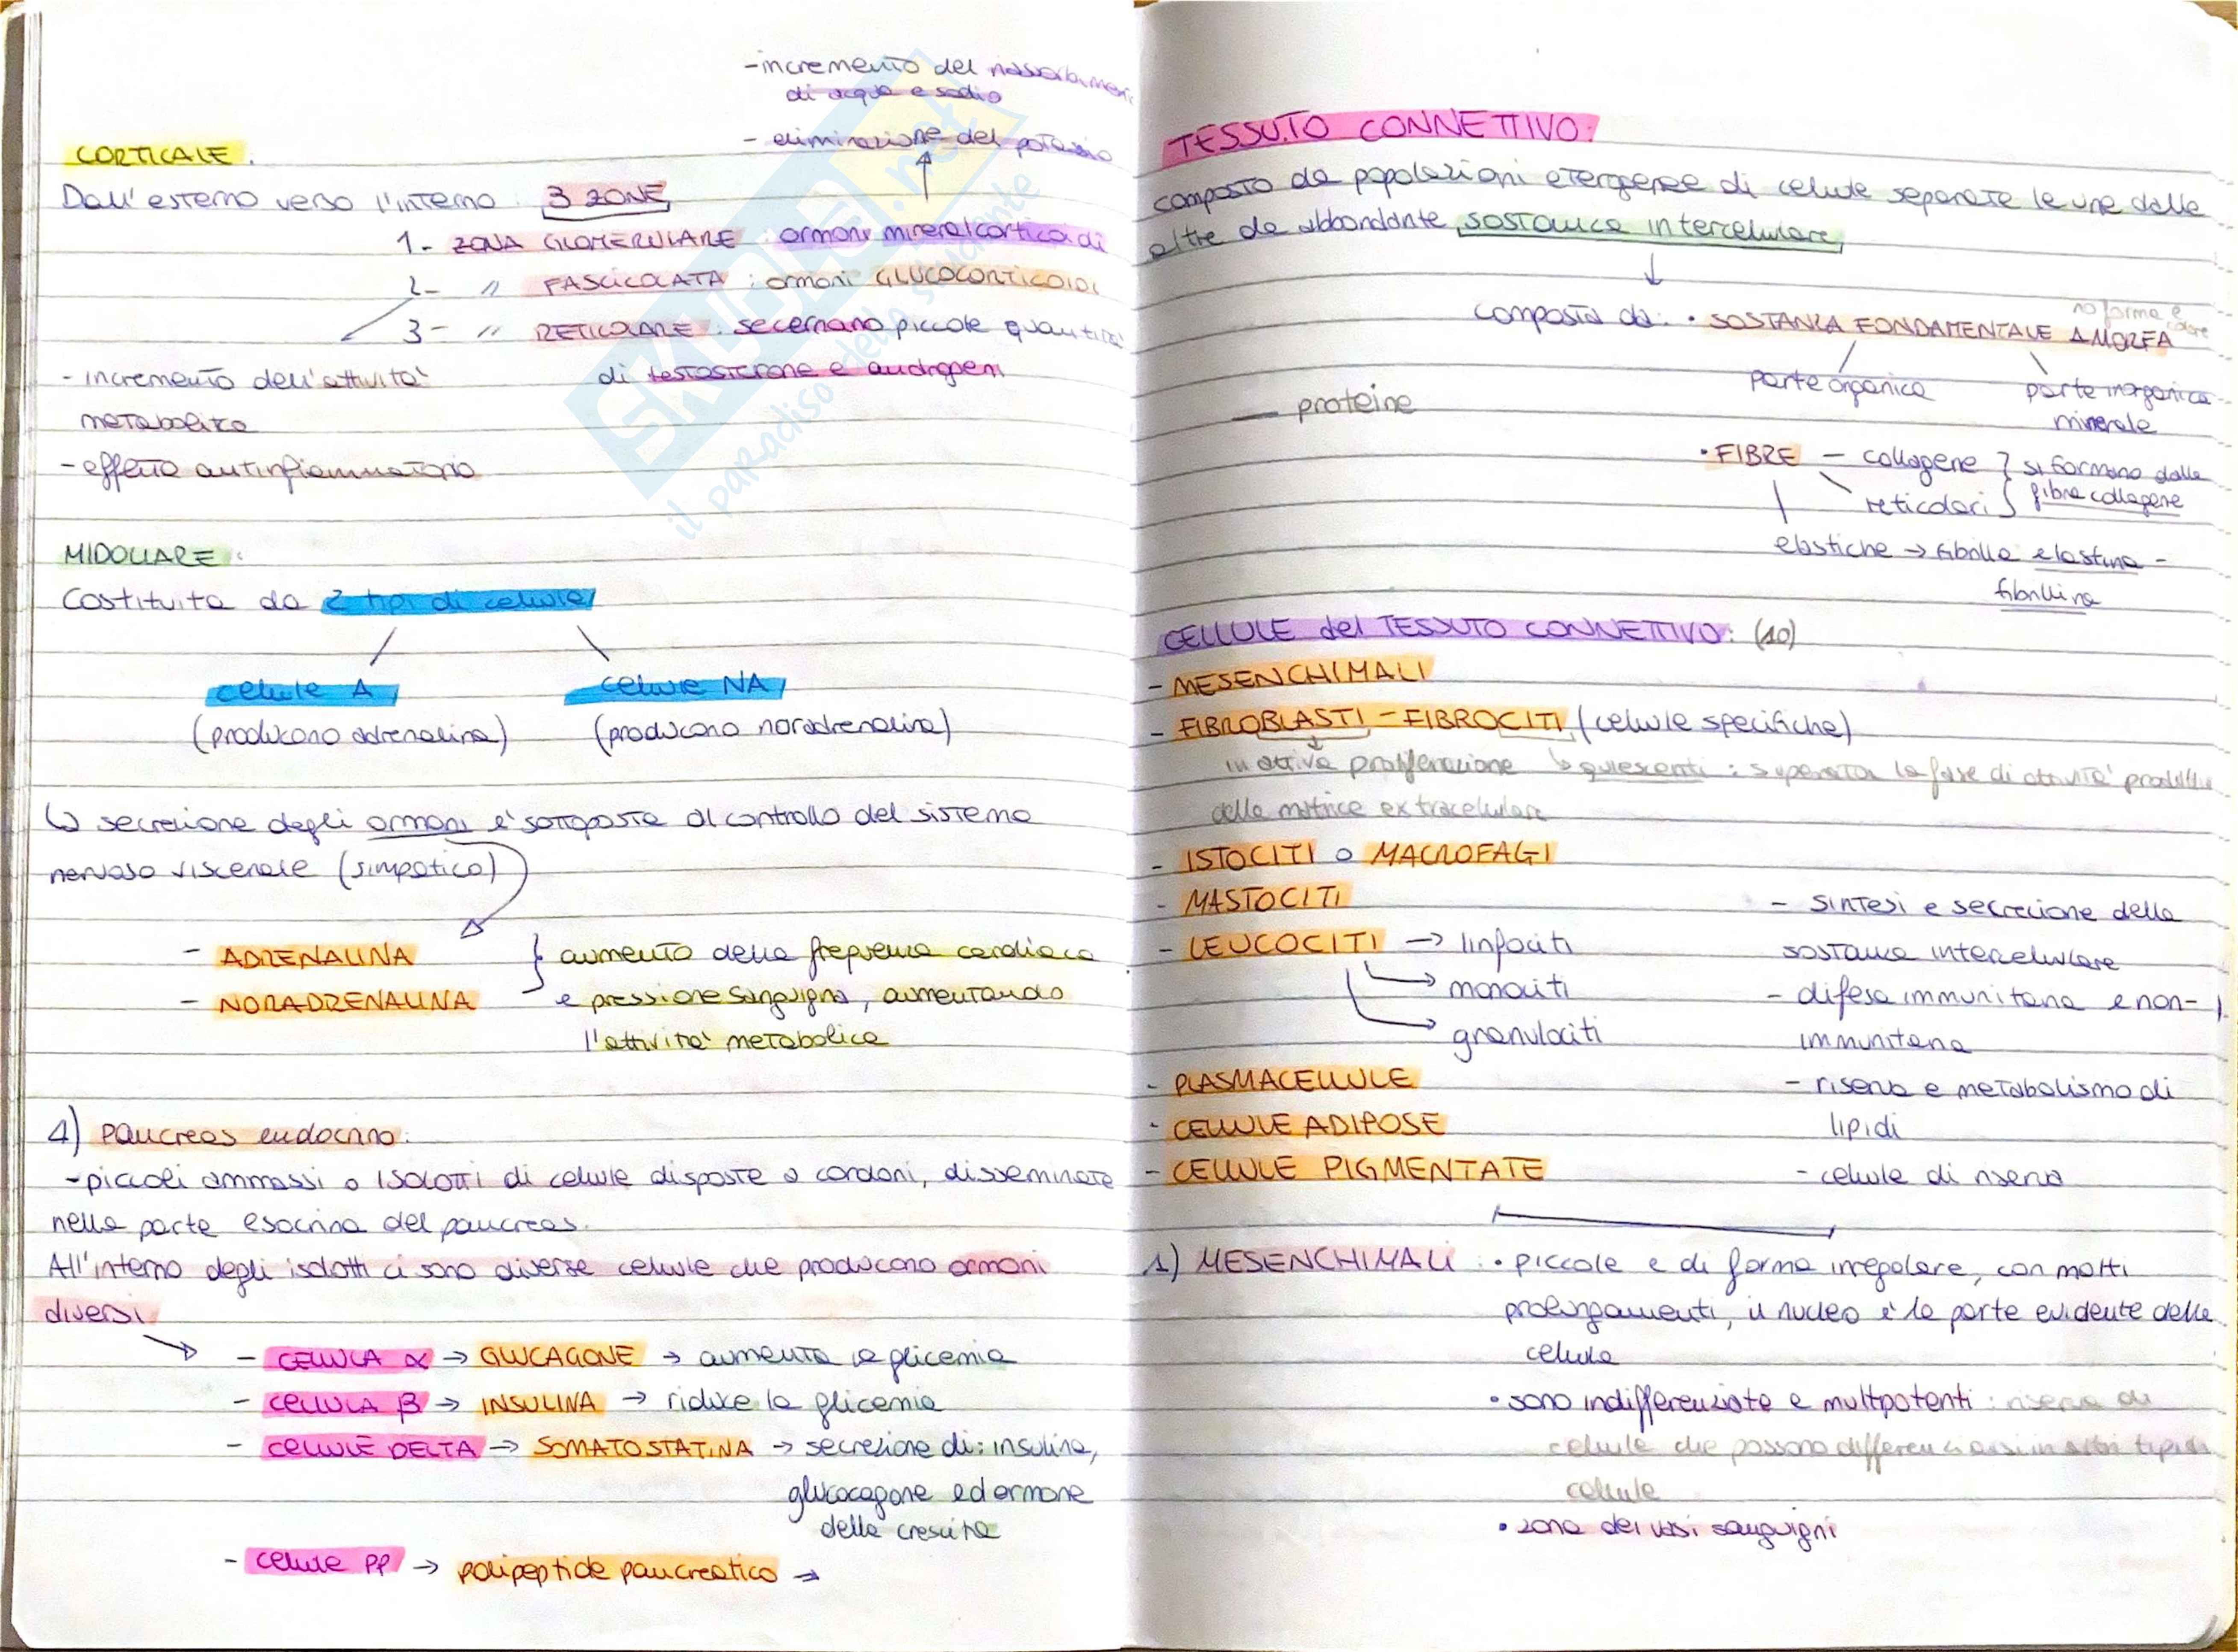 -incremento del riassorbimen
di acqua e sodio
- eliminazione del potassio
CORTICALE.
Dall'esterno verso l'interno: 3 ZONE
1- ZONA GLOMERULARE: ormoni mineralcorticoidi
2- " FASCICOLATA: ormoni GLUCOCORTICOIDI
3- " RETICOLARE: secernano piccole quantità
di testosterone e androgeni
- incremento dell'attività
metabolica
- effetto antinfiammatorio
MIDOLLARE:
Costituita da 2 tipi di cellule
cellule A
cellule NA
(producono adrenalina)
(producono noradrenalina)
↳ secrezione degli ormoni è sottoposta al controllo del sistema
nervoso viscerale (simpatico)
- ADRENALINA
- NORADRENALINA
} aumento della frequenza cardiaca
e pressione sanguigna, aumentando
l'attività metabolica
4) pancreas endocrino:
-piccoli ammassi o ISOLOTTI di cellule disposte a cordoni, disseminate
nella parte esocrina del pancreas.
All'interno degli isolotti ci sono diverse cellule che producono ormoni
diversi
- CELLULA α → GLUCAGONE → aumenta la glicemia
- CELLULA β → INSULINA → riduce la glicemia
- CELLULE DELTA → SOMATOSTATINA → secrezione di: insulina,
glucocagone ed ormone
della crescita
- cellule PP → polipeptide pancreatico →
SKUOLA.net
il paradiso dello studente
TESSUTO CONNETTIVO:
composto da popolazioni eterogenee di cellule separate le une dalle
altre da abbondante sostanza intercellulare
composta da: • SOSTANZA FONDAMENTALE AMORFA
no forma e
parte organica
parte inorganica
minerale
— proteine
• FIBRE — collagene } si formano dalle
reticolari } fibre collagene
elastiche → fibrille elastina -
fibrillina
CELLULE del TESSUTO CONNETTIVO: (10)
- MESENCHIMALI
- FIBROBLASTI - FIBROCITI (cellule specifiche)
in attiva proliferazione ↳ quiescenti: superata la fase di attività produttiva
della matrice extracellulare
- ISTOCITI o MACROFAGI
- MASTOCITI
- LEUCOCITI → linfociti
→ monociti
→ granulociti
- PLASMACELLULE
- CELLULE ADIPOSE
- CELLULE PIGMENTATE
- sintesi e secrezione della
sostanza intercellulare
- difesa immunitaria e non-
immunitaria
- riserva e metabolismo di
lipidi
- cellule di riserva
1) MESENCHIMALI: • piccole e di forma irregolare, con molti
prolungamenti, il nucleo è la parte evidente della
cellula
• sono indifferenziate e multipotenti: riserva di
cellule che possono differenziarsi in altri tipi di
cellule
• zona dei vasi sanguigni